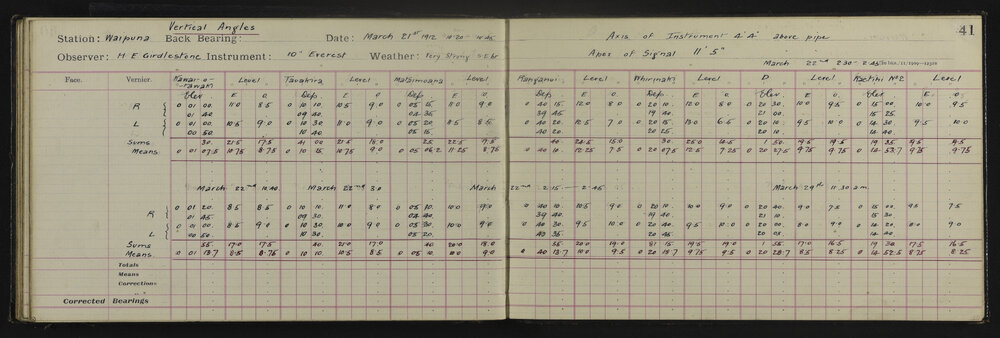 Vertical Angles
41
Station: Waipuna Back Bearing: Date: March 21st 1912 10·20 - 10·45 Axis of Instrument 4' 4" above pipe
Observer: H E Girdlestone Instrument: 10" Everest Weather: Very Strong Apex of Signal 11' 5"
March 22nd 2·30 - 2·45
Face. Vernier. Level Tauakira Level Matemoana Level Ranganui Level Whirinaki Level D Level Raetihi No 2 Level
Elev E O. Dep. E O. Dep. E O. Dep. E O. Dep. E O. Elev E O. Elev E O.
R 0 01 00. 11·0 8·5 0 10 10. 10·5 9·0 0 05 15. 11·0 9·0 0 40 15. 12·0 8·0 0 20 10. 12·0 8·0 0 20 30. 10·0 9·5 0 15 00. 10·0 9·5
01 40 09 40. 04 35. 39 45 19 40. 21 00 14 25.
L 0 01 00 10·5 9·0 0 10 30 11·0 9·0 0 05 20 11·5 8·5 0 40 20. 12·5 7·0 0 20 15. 13·0 6·5 0 20 10. 9·5 10·0 0 14 30. 9·5 10·0
00 50. 10 40 05 15. 40 20. 20 25 20 10 14 40
Sums 30. 21·5 17·5 41 00 21·5 18·0 25 22·5 17·5 40. 24·5 15·0 30 25·0 14·5 1 50. 19·5 19·5 19 35 19·5 19·5
Means. 0 01 07·5 10·75 8·75 0 10 15 10·75 9·0 0 05 06·2 11·25 8·75 0 40 10· 12·25 7·5 0 20 07·5 12·5 7·25 0 20 27·5 9·75 9·75 0 14 53·7 9·75 9·75
March 22nd 10·40 March 22nd 3·0 March 22nd 2·15 - 2·45 March 29th 11·30 am.
R 0 01 20. 8·5 8·5 0 10 10 11·0 8·0 0 05 30. 10·0 9·0 0 40 10. 10·5 9·0 0 20 10. 10·0 9·0 0 20 40. 9·0 7·5 0 15 00 9·5 7·5
01 45. 09 30. 04 40. 39 40 19 40. 21 10. 15 30
L 0 01 00 8·5 9·0 0 10 30. 10·0 9·0 0 05 10 10·0 9·0 0 40 30. 9·5 10·0 0 20 40. 9·5 10·0 0 20 00 8·0 9·0 0 14 20. 8·0 9·0
00 50. 10 30. 05 20. 40 35 20 45 20 05 14 40
Sums 55. 17·0 17·5 40. 21·0 17·0 40 20·0 18·0 55 20·0 19·0 81 15 19·5 19·0 1 55 17·0 16·5 19 30 17·5 16·5
Means. 0 01 13·7 8·5 8·75 0 10 10 10·5 8·5 0 05 10. 10·0 9·0 0 40 13·7 10·0 9·5 0 20 18·7 9·75 9·5 0 20 28·7 8·5 8·25 0 14 52·5 8·75 8·25
Totals
Means
Corrections
Corrected Bearings